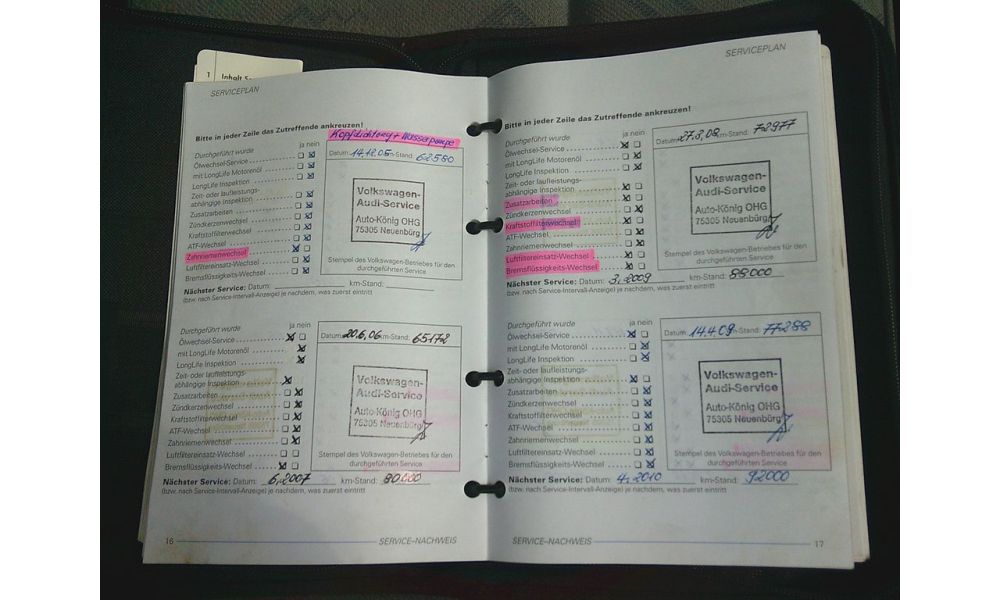 1 Inhalt
SERVICEPLAN
Bitte in jeder Zeile das Zutreffende ankreuzen!
Kopfdichtung + Wasserpumpe
Durchgeführt wurde ja nein
Ölwechsel-Service
mit LongLife Motorenöl
LongLife Inspektion
Zeit- oder laufleistungs-
abhängige Inspektion
Zusatzarbeiten
Zündkerzenwechsel
Kraftstoffilterwechsel
ATF-Wechsel
Zahnriemenwechsel
Luftfiltereinsatz-Wechsel
Bremsflüssigkeits-Wechsel
Datum: 14.12.05 km-Stand: 62580
Volkswagen-
Audi-Service
Auto-König OHG
75305 Neuenbürg
Stempel des Volkswagen-Betriebes für den
durchgeführten Service
Nächster Service: Datum: km-Stand:
(bzw. nach Service-Intervall-Anzeige) je nachdem, was zuerst eintritt
Durchgeführt wurde ja nein
Ölwechsel-Service
mit LongLife Motorenöl
LongLife Inspektion
Zeit- oder laufleistungs-
abhängige Inspektion
Zusatzarbeiten
Zündkerzenwechsel
Kraftstoffilterwechsel
ATF-Wechsel
Zahnriemenwechsel
Luftfiltereinsatz-Wechsel
Bremsflüssigkeits-Wechsel
Datum: 20.6.06 km-Stand: 65172
Volkswagen-
Audi-Service
Auto-König OHG
75305 Neuenbürg
Stempel des Volkswagen-Betriebes für den
durchgeführten Service
Nächster Service: Datum: 6.2007 km-Stand: 80000
(bzw. nach Service-Intervall-Anzeige) je nachdem, was zuerst eintritt
16 SERVICE-NACHWEIS
SERVICEPLAN
Bitte in jeder Zeile das Zutreffende ankreuzen!
Durchgeführt wurde ja nein
Ölwechsel-Service
mit LongLife Motorenöl
LongLife Inspektion
Zeit- oder laufleistungs-
abhängige Inspektion
Zusatzarbeiten
Zündkerzenwechsel
Kraftstoffilterwechsel
ATF-Wechsel
Zahnriemenwechsel
Luftfiltereinsatz-Wechsel
Bremsflüssigkeits-Wechsel
Datum: 27.3.08 km-Stand: 72977
Volkswagen-
Audi-Service
Auto-König OHG
75305 Neuenbürg
Stempel des Volkswagen-Betriebes für den
durchgeführten Service
Nächster Service: Datum: 3.2009 km-Stand: 88000
(bzw. nach Service-Intervall-Anzeige) je nachdem, was zuerst eintritt
Durchgeführt wurde ja nein
Ölwechsel-Service
mit LongLife Motorenöl
LongLife Inspektion
Zeit- oder laufleistungs-
abhängige Inspektion
Zusatzarbeiten
Zündkerzenwechsel
Kraftstoffilterwechsel
ATF-Wechsel
Zahnriemenwechsel
Luftfiltereinsatz-Wechsel
Bremsflüssigkeits-Wechsel
Datum: 14.4.09 km-Stand: 77288
Volkswagen-
Audi-Service
Auto-König OHG
75305 Neuenbürg
Stempel des Volkswagen-Betriebes für den
durchgeführten Service
Nächster Service: Datum: 4.2010 km-Stand: 92000
(bzw. nach Service-Intervall-Anzeige) je nachdem, was zuerst eintritt
SERVICE-NACHWEIS 17